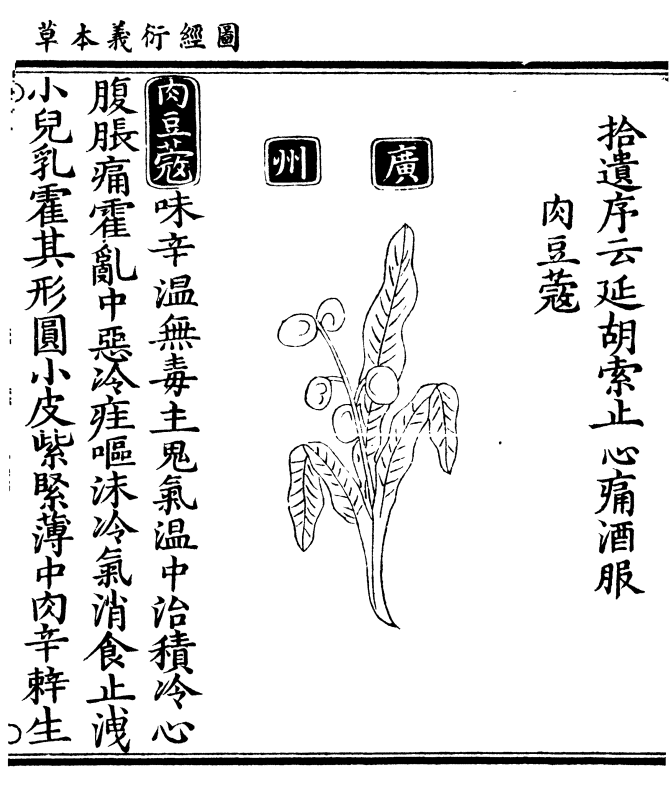 圖經衍義本草
拾遺序云延胡索止心痛酒服
肉豆蔻
廣州
肉豆蔻味辛溫無毒主鬼氣溫中治積冷心
腹脹痛霍亂中惡冷疰嘔沫冷氣消食止洩
小兒乳霍其形圓小皮紫緊薄中肉辛辢生